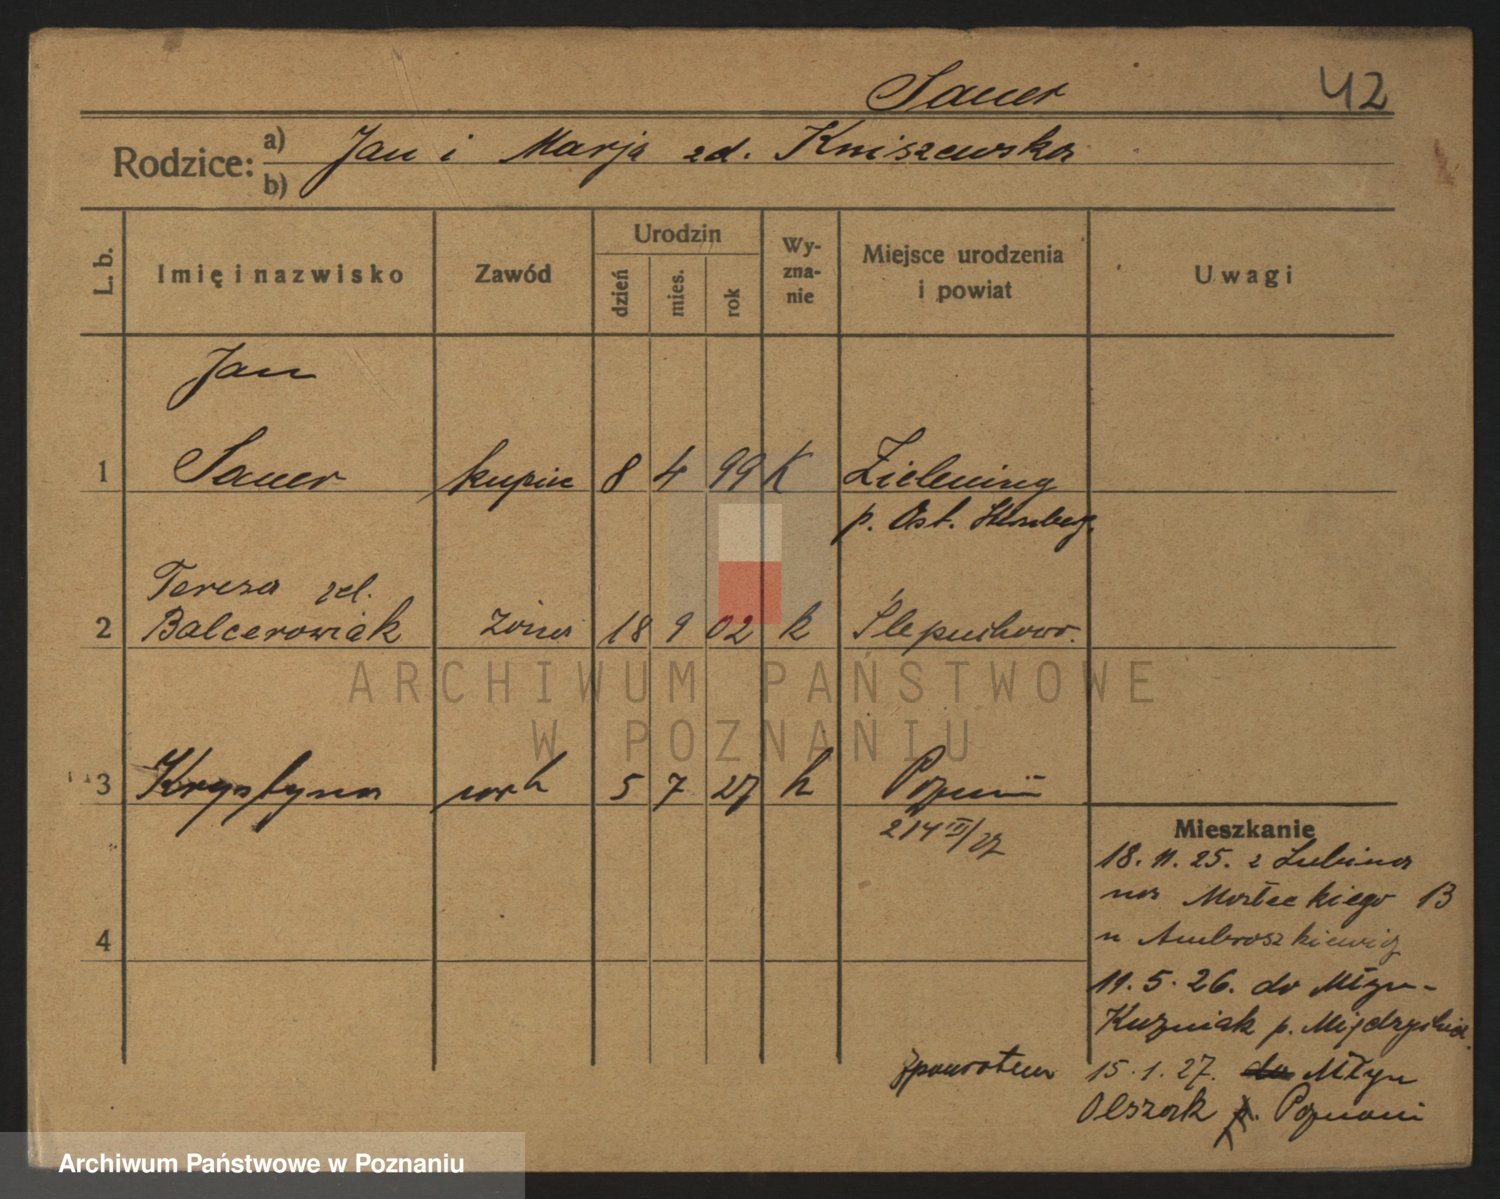 Sauer 42
Rodzice: a) Jan i Marja zd. Kniszewska
b)
L. b. Imię i nazwisko Zawód Urodzin dzień mies. rok Wy-zna-nie Miejsce urodzenia i powiat Uwagi
Jan
1 Sauer kupiec 8 4 99 K Zieleniny
p. Ost.
Teresa zd.
2 Balcerowiak żona 18 9 02 k Ślepuchowo.
ARCHIWUM PAŃSTWOWE
W POZNANIU
3 Krystyna 5 7 27 k Poznań
214 III/27
Mieszkanie
18. 11. 25. z Lubina
na Masłeckiego 13
u Ambroszkiewicz
4
11. 5. 26. do Młyn-
Kuźniak p.
zpowrotem 15. 1. 27. do Młyn
Olszak p. Poznani
Archiwum Państwowe w Poznaniu